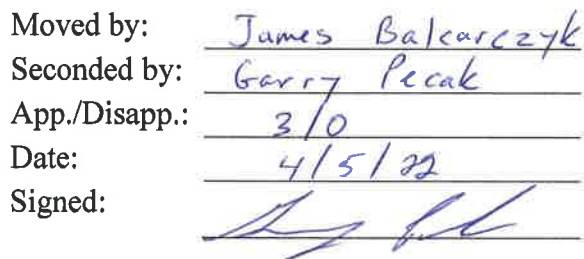 Moved by: James Balcarczyk
Seconded by: Garry Pecak
App./Disapp.: 3/0
Date: 4/5/22
Signed: